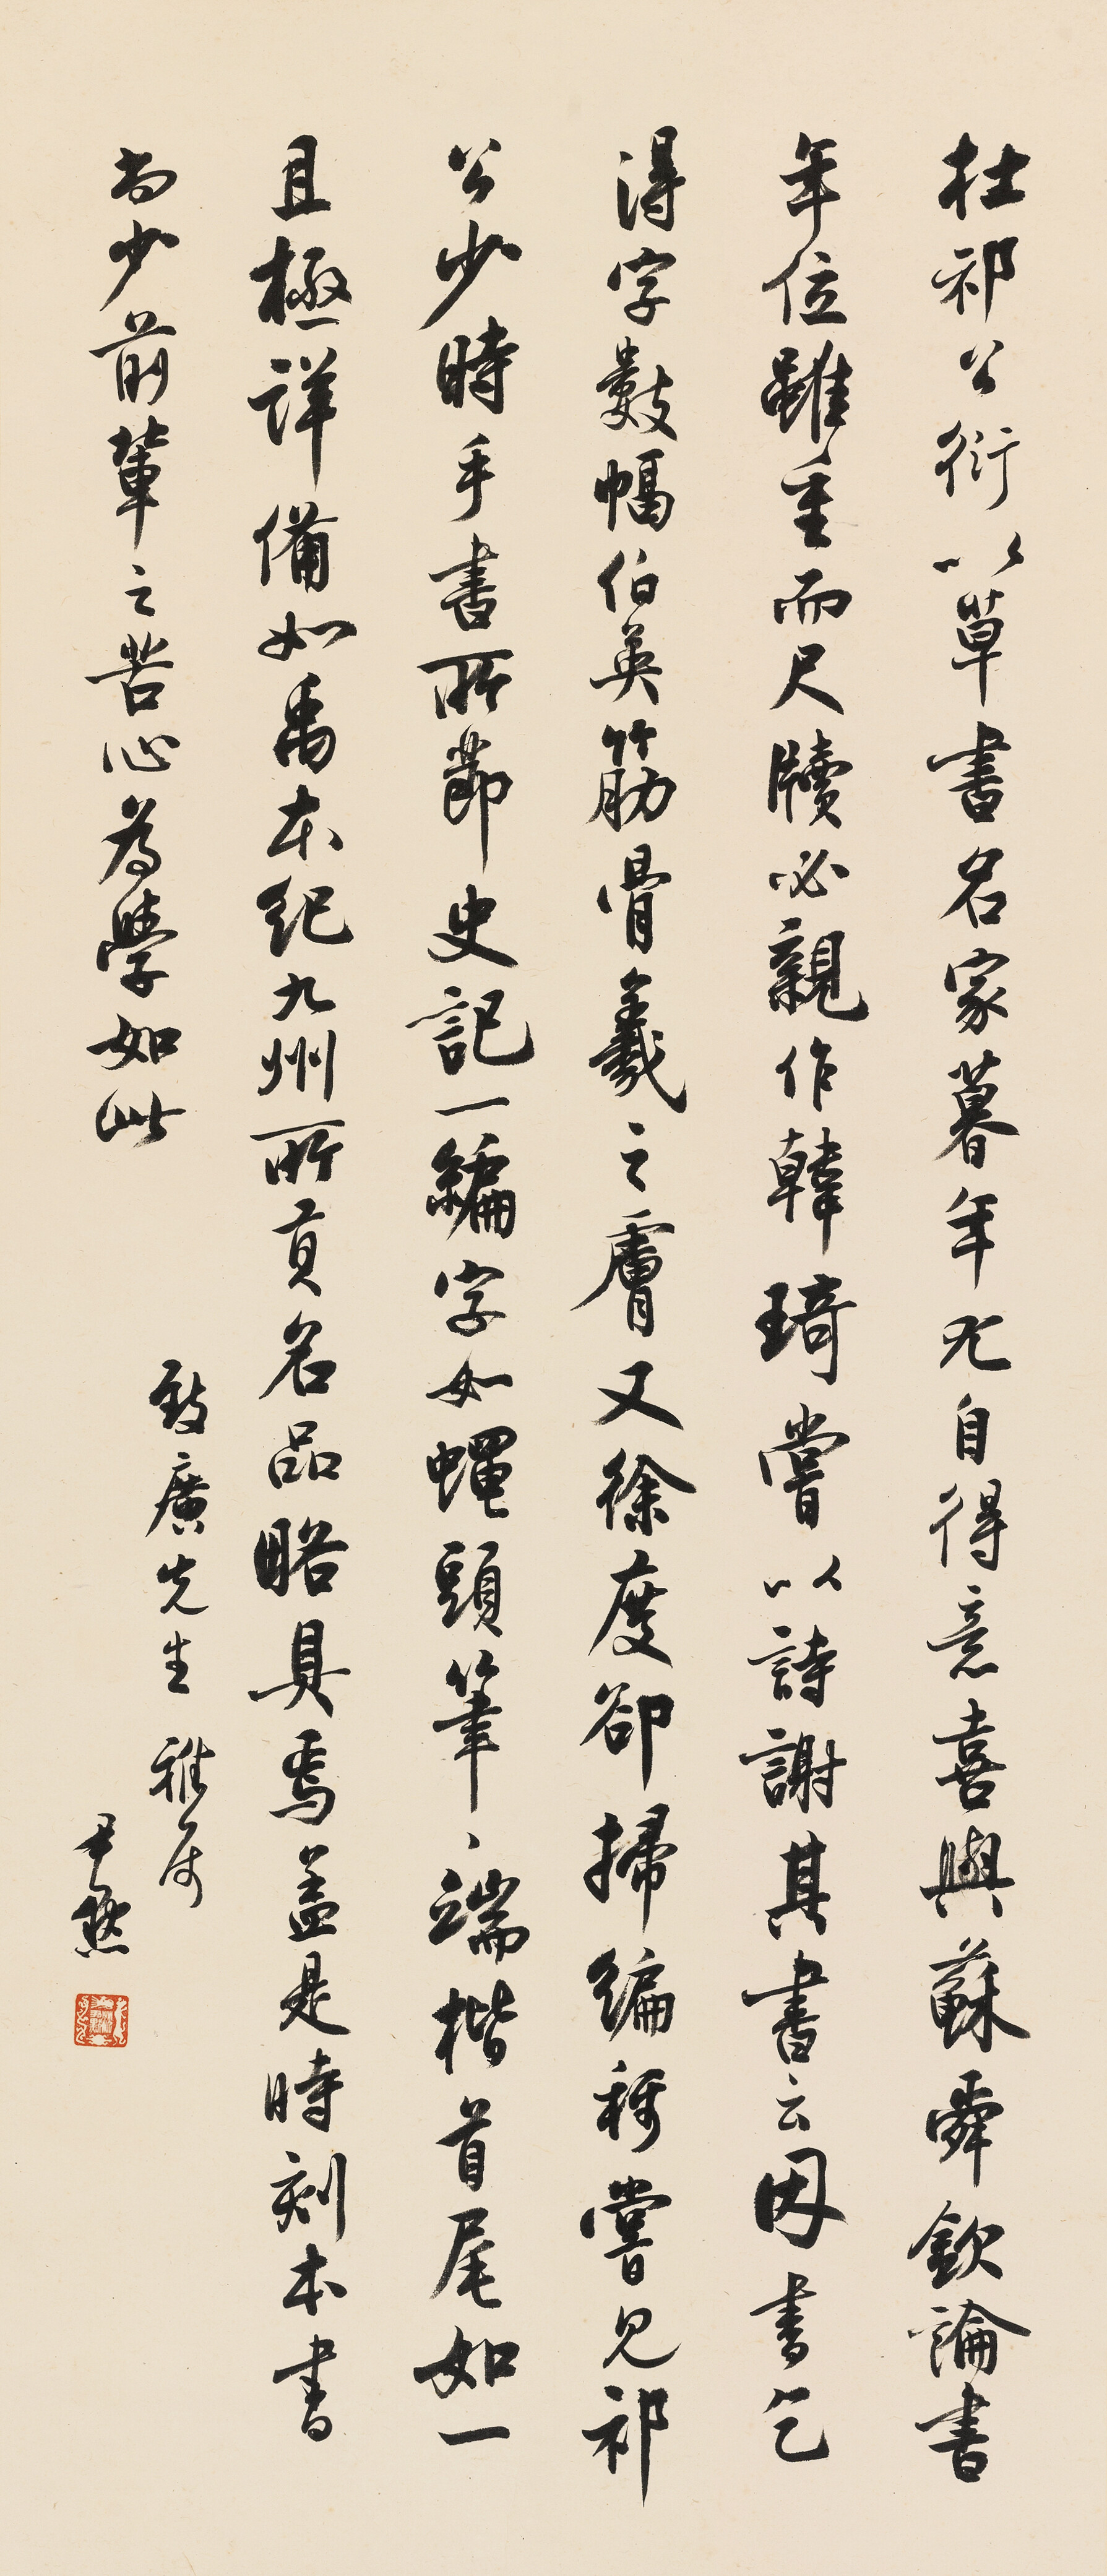 杜祁公衍以草書名家暮年尤自得意喜與蘇舜欽論書
年位雖重而尺牘必親作韓琦嘗以詩謝其書云因書乞
得字數幅伯英筋骨羲之膚又徐度卻掃編稱嘗見祁
公少時手書所節史記一編字如蠅頭筆〻端楷首尾如一
且極詳備如禹本紀九州所貢名品略具焉蓋是時刻本書
尚少前輩之苦心為學如此
致廣先生雅屬
尹默